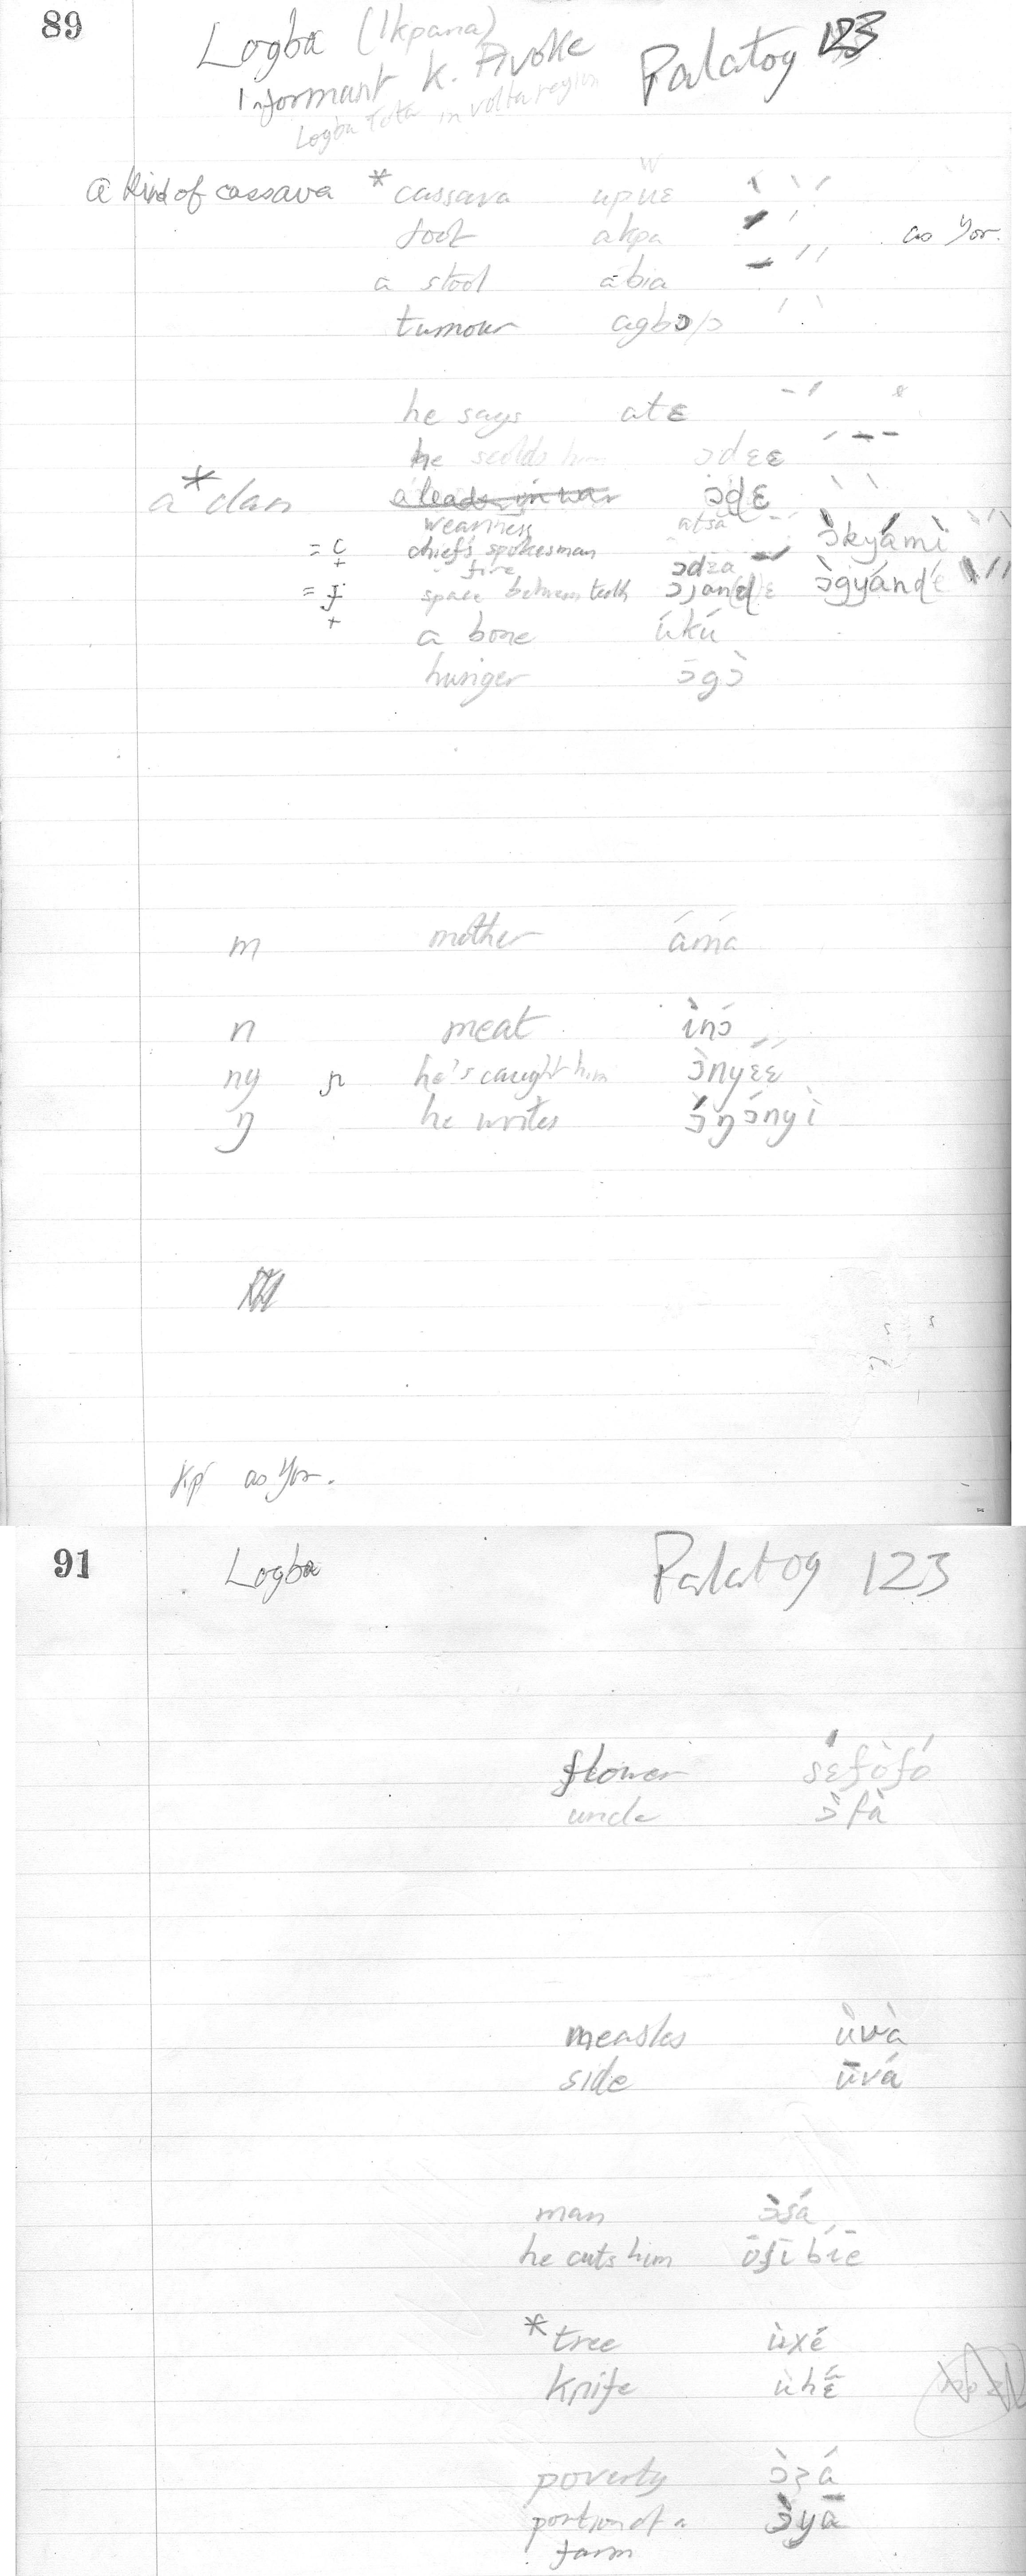 89
Logba (Ikpana) Palatog 123
Informant K. Avoke
Logba Tota in volta region
w
a kind of cassava * cassava upuɛ ` ` ´
foot akpa as Yor.
a stool abia
tumour agbɔ/ɔ
he says atɛ
he scolds him ɔdɛɛ
a * clan a leads in war ɔɖɛ
weariness atsa
= c chief's spokesman ɔ̀kyámì
+ fire ɔdza
= ɟ space between teeth ɔɟan(d)ɛ ɔ̀gyánɖé
+ a bone úkú
hunger ɔ̄gɔ̀
m mother ámá
n meat ìnɔ́
ny ɲ he's caught him ɔ̀nyɛ́ɛ́
ŋ he writes ɔ́ŋɔ́nyì
kp as Yor.
91 Logba Palatog 123
flower sɛ́fòfó
uncle ɔ̀fà
measles ùvà
side ūvá
man ɔ̀sá
he cuts him ōʃī bíē
* tree ùxé
knife ùhɛ́
poverty ɔ̀zá
portion of a ɔ̀yā
farm